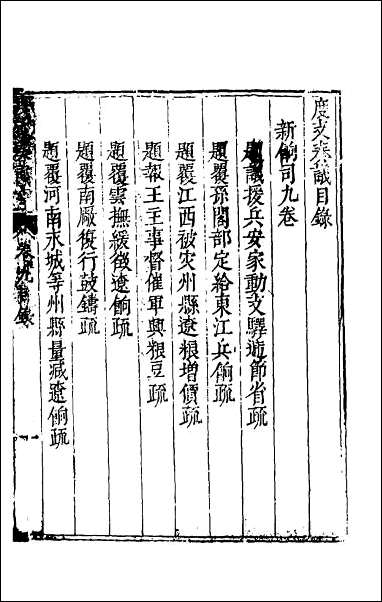 度支奏議目錄
新餉司九卷
題議援兵安家動支驛遞節省疏
題覆孫閣部定給東江兵餉疏
題覆江西被灾州縣遼粮增價疏
題報王主事督催軍興粮豆疏
題覆雲撫緩徵遼餉疏
題覆南厰復行鼓鑄疏
題覆河南永城等州縣量減遼餉疏
卷九 目錄
一